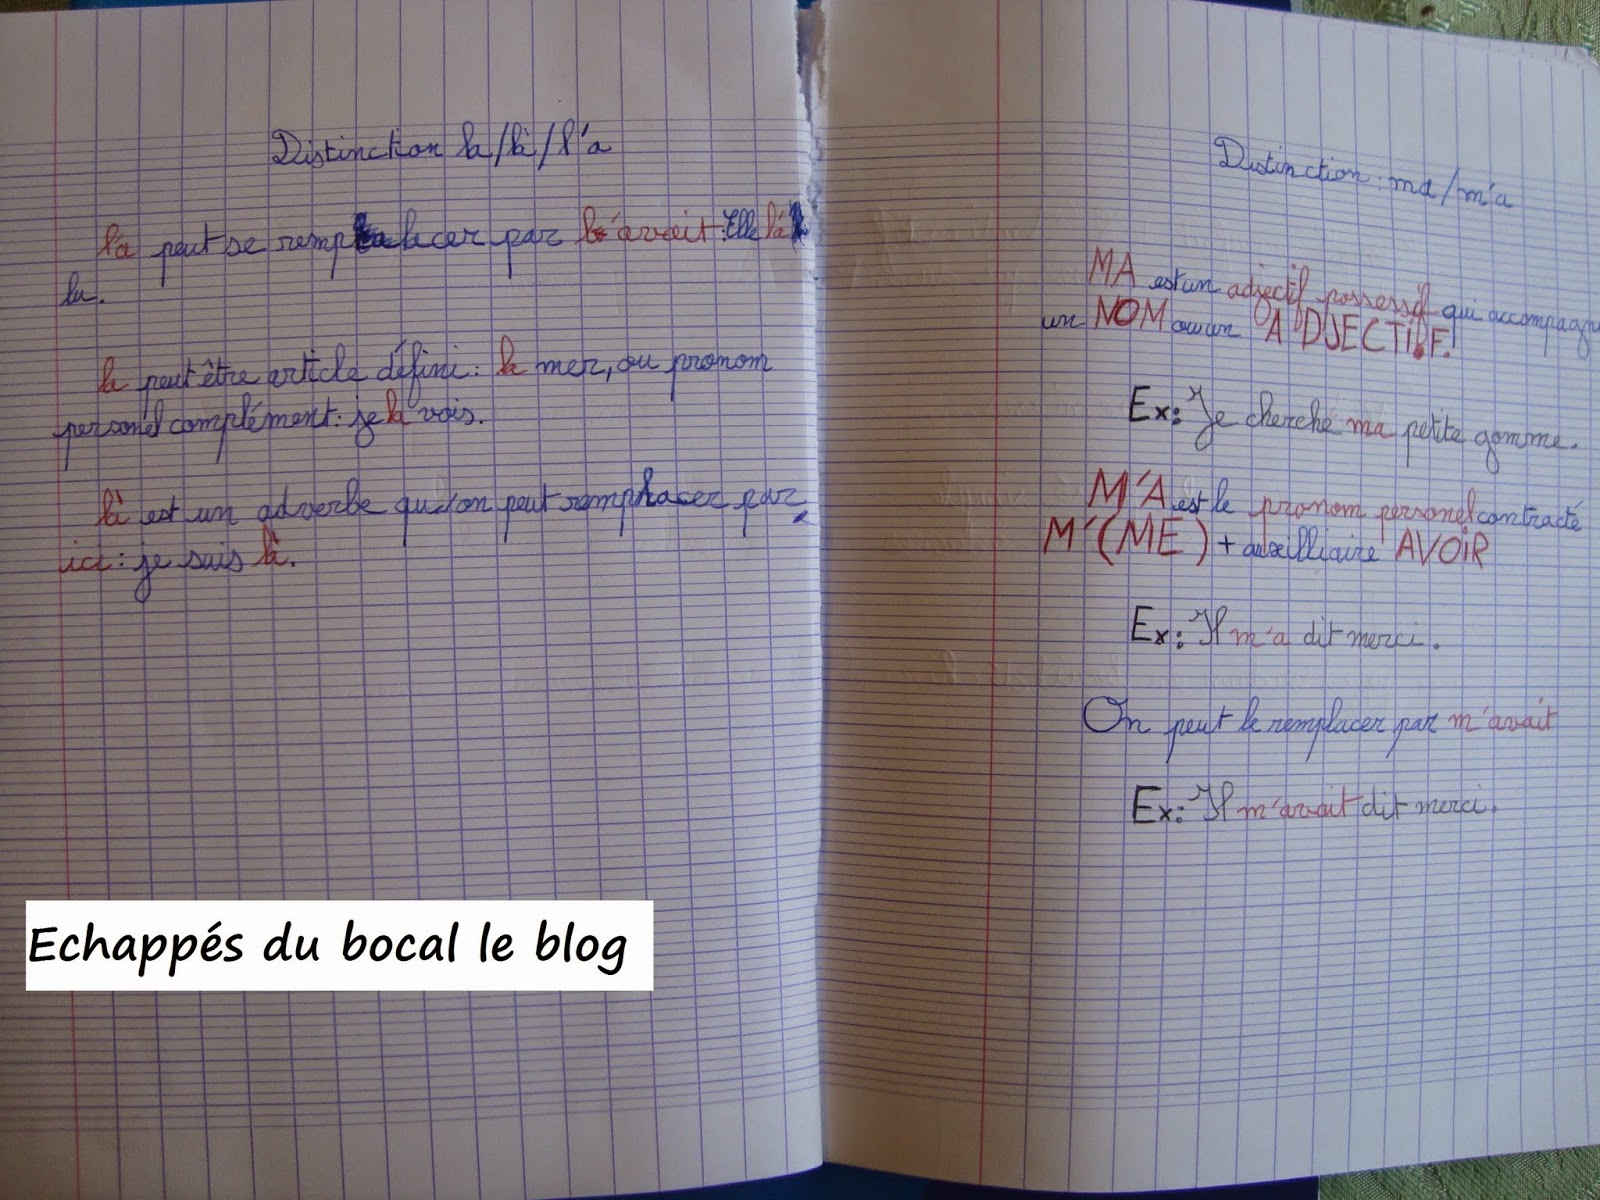 Distinction la/là/l'a
l'a peut se remplacer par l'avait : Elle l'a
lu.
la peut être article défini : la mer, ou pronom
personel complément : je la vois.
là est un adverbe qu'on peut remplacer par
ici : je suis là.
Echappés du bocal le blog
Distinction : ma/m'a
MA est un adjectif possessif qui accompagne
un NOM ou un ADJECTIF!
Ex: Je cherche ma petite gomme.
M'A est le pronom personel contracté
M'(ME) + auxilliaire AVOIR
Ex: Il m'a dit merci.
On peut le remplacer par m'avait
Ex: Il m'avait dit merci.